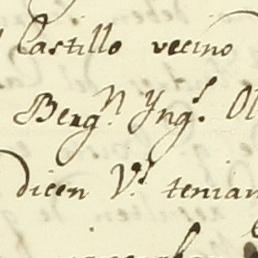 Castillo vecino
Beng.n Yng.s Ol
dicen V.s tenian